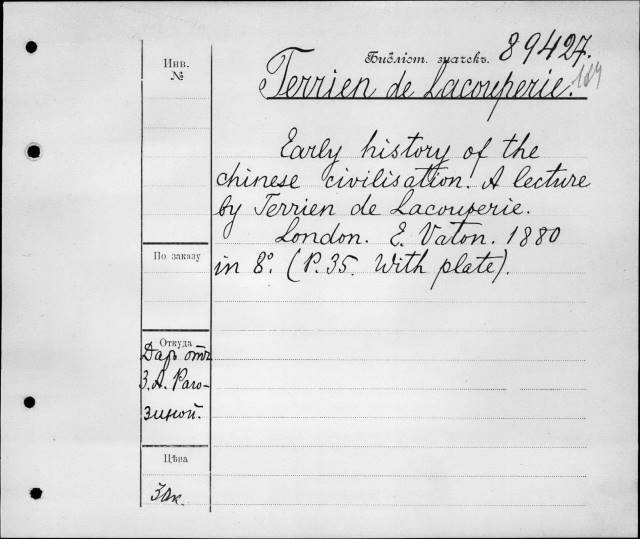 Инв. №
Библіот. значекъ. 89427.
189
Terrien de Lacouperie.
Early history of the
chinese civilisation. A lecture
by Terrien de Lacouperie.
London. E. Vaton. 1880
in 8º. (P. 35. With plate).
По заказу
Откуда
Даръ отъ
З. А. Раго-
зиной.
Цѣна
Зак.